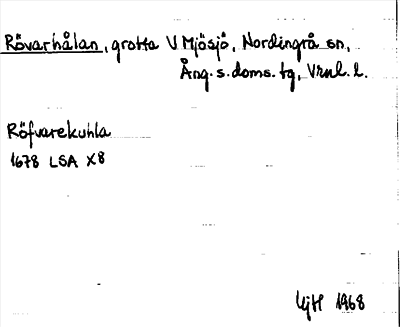 Rövarhålan, grotta V Mjösjö, Nordingrå sn,
Ång. s. doms. tg, Vrnl. l.
Röfvarekuhla
1678 LSA X8
UjH 1968